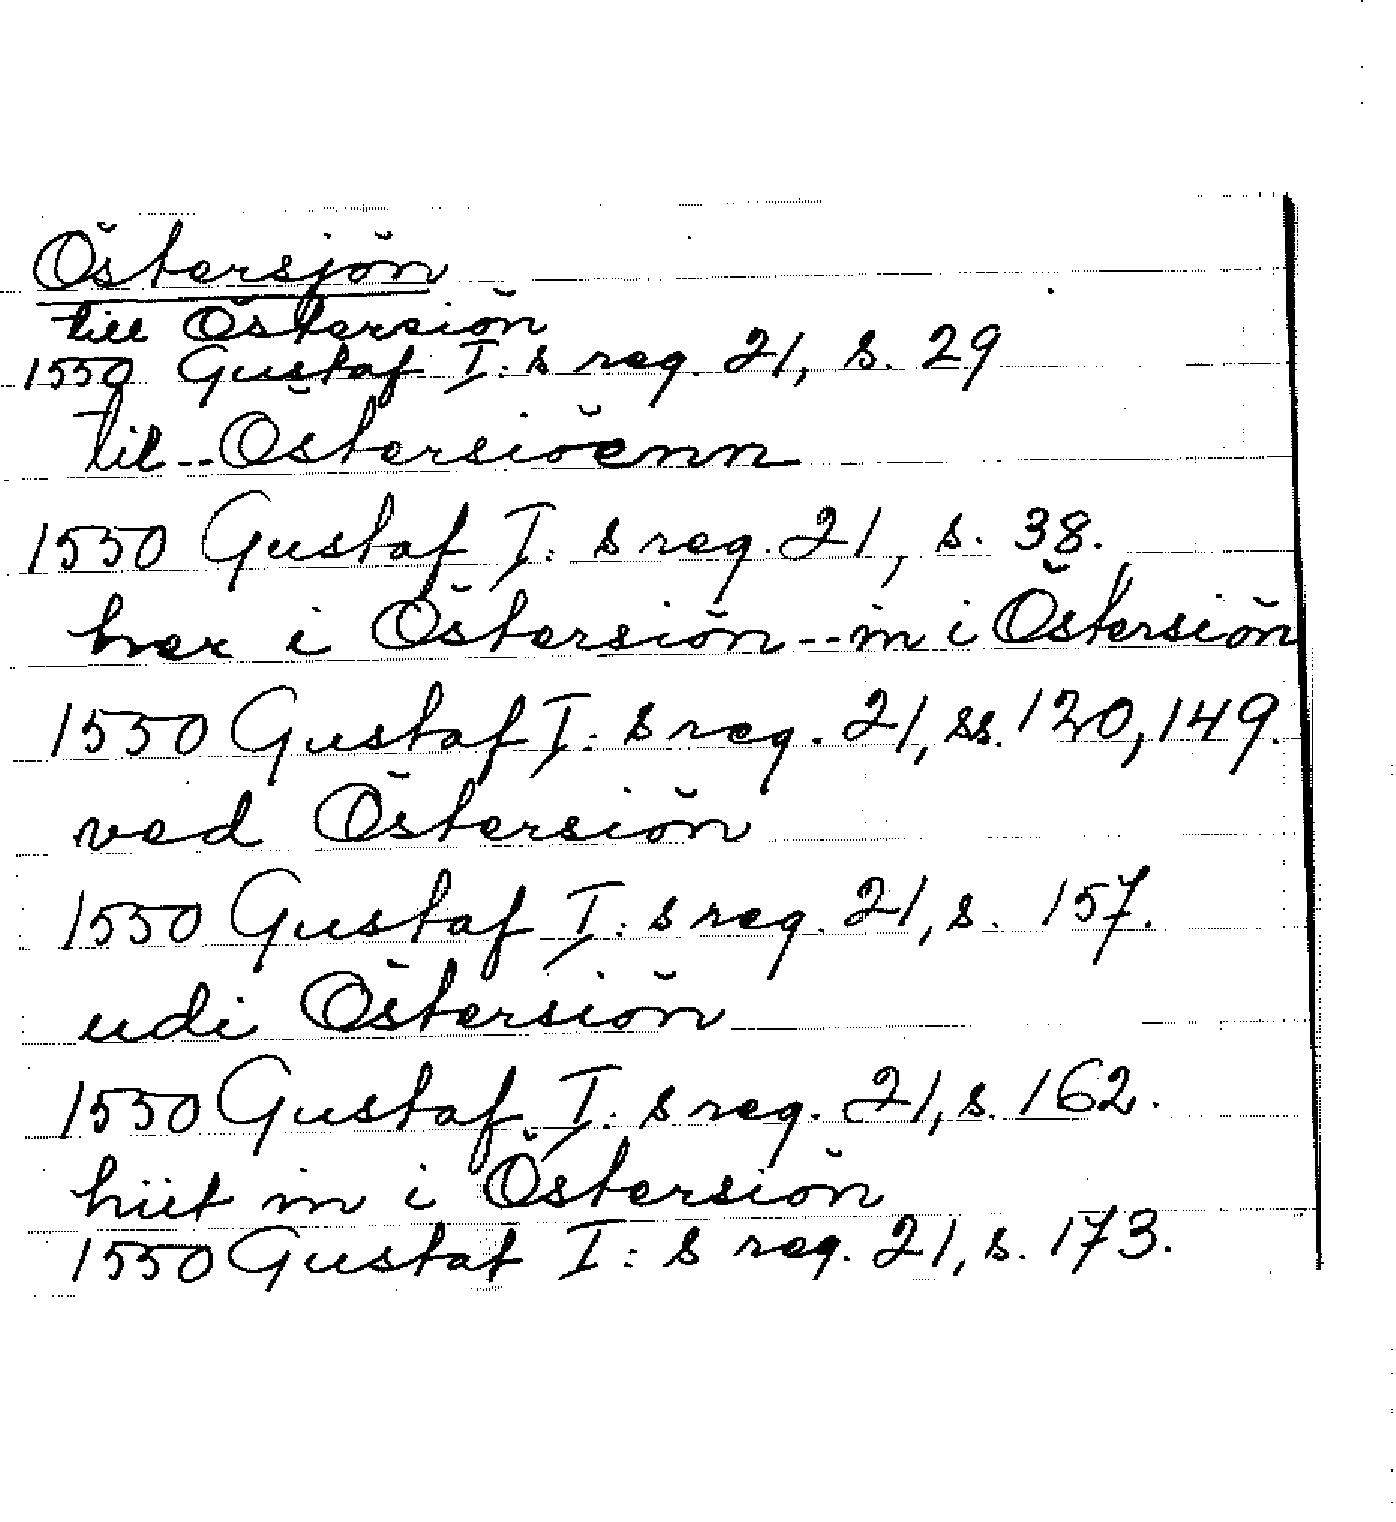 Östersjön
till Östersiön
1550 Gustaf I: s reg. 21, s. 29
til -- Östersiöenn
1550 Gustaf I: s reg. 21, s. 38.
her i Östersiön -- in i Östersiön
1550 Gustaf I: s reg. 21, ss. 120, 149.
ved Östersiön
1550 Gustaf I: s reg. 21, s. 157.
udi Östersiön
1550 Gustaf I: s reg. 21, s. 162.
hiit in i Östersiön
1550 Gustaf I: s reg. 21, s. 173.